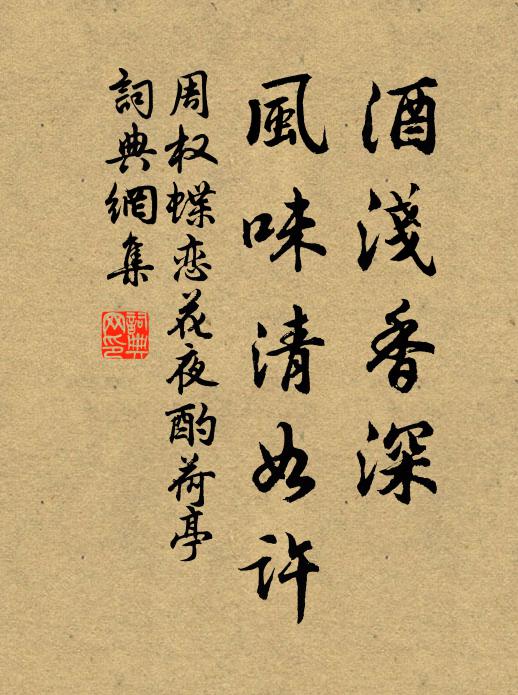 酒淺香深
風味清如許
周权蝶恋花夜酌荷亭
詞典網集
詞典网印